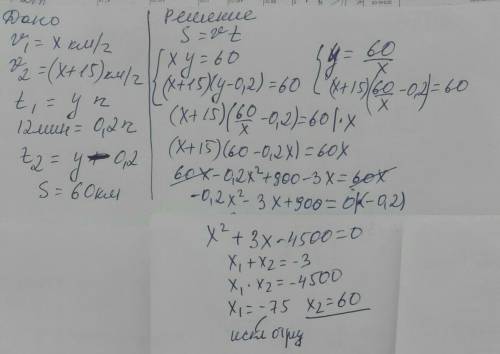 Дано
v₁ = x км/г
v₂ = (x+15) км/г
t₁ = y г
12 мин = 0,2 г
t₂ = y - 0,2
S = 60 км
Решение
S = vt
{ xy = 60
(x+15)(y-0,2) = 60
{ y = 60/x
(x+15)(60/x - 0,2) = 60
(x+15)(60/x - 0,2) = 60 | · x
(x+15)(60 - 0,2x) = 60x
60x - 0,2x² + 900 - 3x = 60x
-0,2x² - 3x + 900 = 0 (-0,2)
x² + 3x - 4500 = 0
x₁ + x₂ = -3
x₁ · x₂ = -4500
x₁ = -75 x₂ = 60